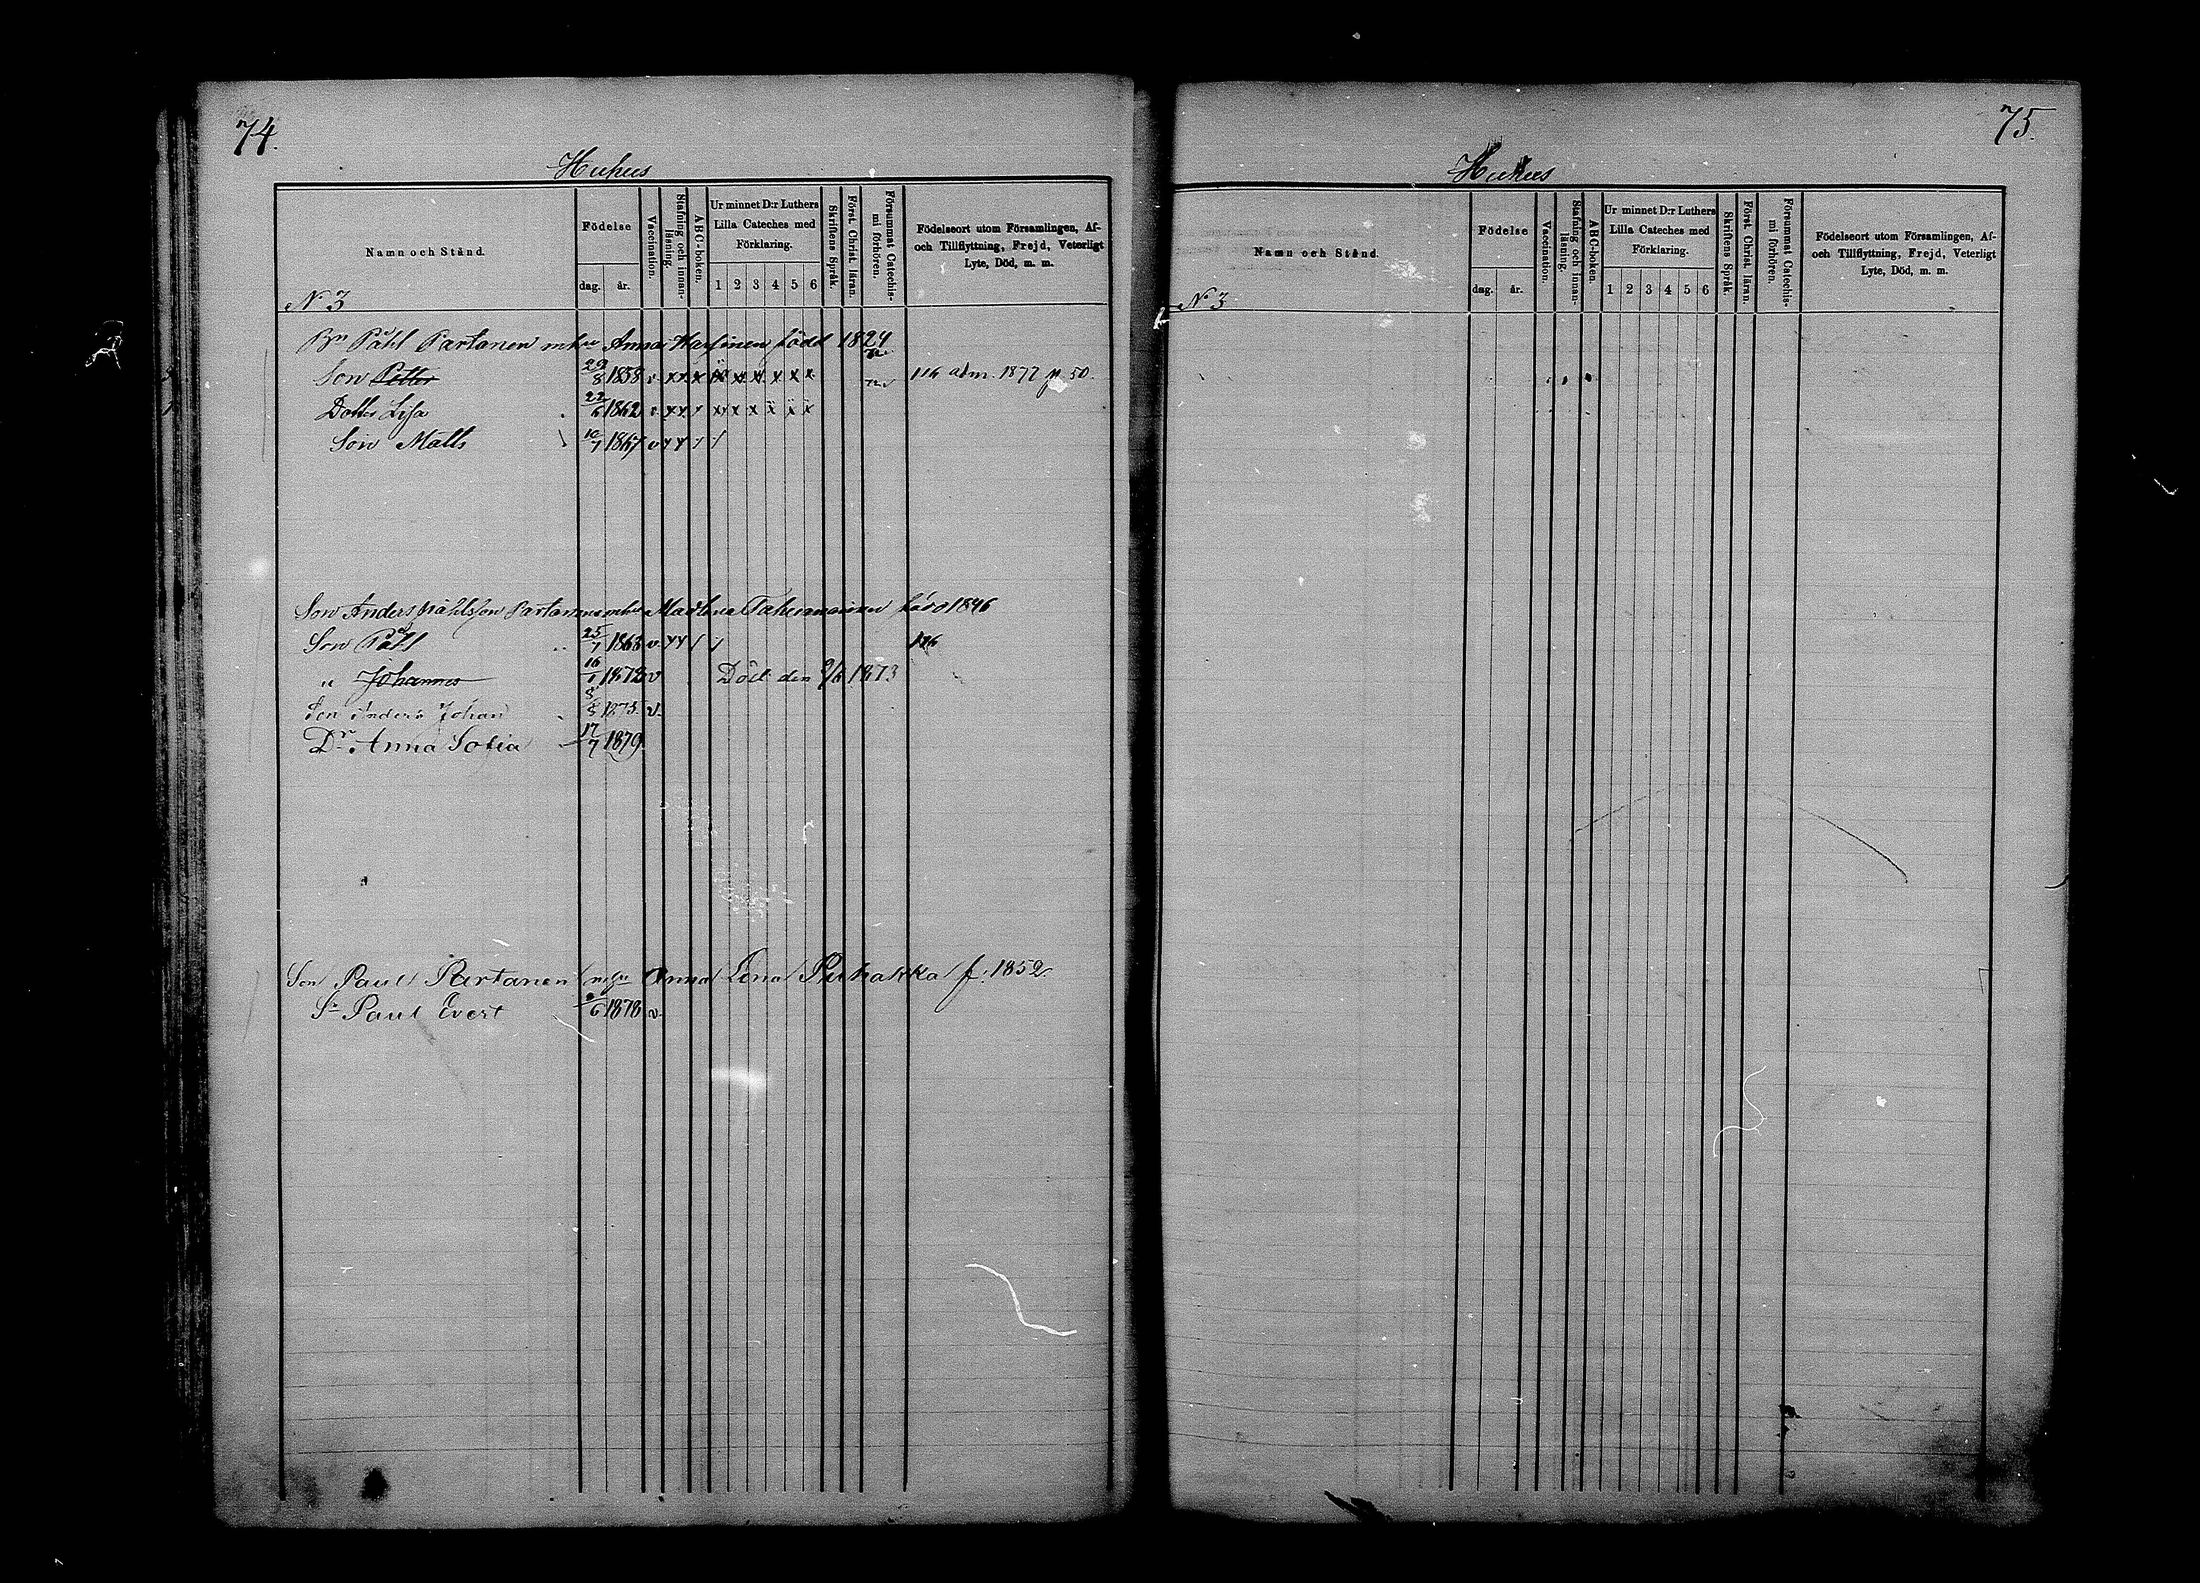 74.
Huhus
Namn och Stånd.
Födelse
dag. år.
Vaccination.
Stafning och innanläsning.
ABC-boken.
Ur minnet D:r Luthers Lilla Cateches med Förklaring.
1 2 3 4 5 6
Skriftens Språk.
Först. Christ. läran.
Försummat Catechismi förhören.
Födelseort utom Församlingen, Af- och Tillflyttning, Frejd, Veterligt Lyte, Död, m. m.
N:o 3
Bn Påhl Partanen mhu Anna född 1824
Son Petter 29/8 1858 v 116 adm. 1877 p. 50.
Dotter Lisa 22/6 1862 v
Son Matts 10/7 1867 v
Son Anders Påhlsson Partanen mhu Madlena född 1846
Son Påhl 25/7 1868 v 116
" Johannes 16/1 1872 v Död den 1873
Son Anders Johan 1875. v.
Dr. Anna Sofia 17/7 1879
Son Paul Partanen mhu Anna Lena Puhakka f. 1852
Sn Paul Evert /6 1878 v.
75.
Huhus
Namn och Stånd.
Födelse
dag. år.
Vaccination.
Stafning och innanläsning.
ABC-boken
Ur minnet D:r Luthers Lilla Cateches med Förklaring.
1 2 3 4 5 6
Skriftens Språk.
Först. Christ. läran.
Försummat Catechismi förhören.
Födelseort utom Församlingen, Af- och Tillflyttning, Frejd, Veterligt Lyte, Död, m. m.
N:o 3